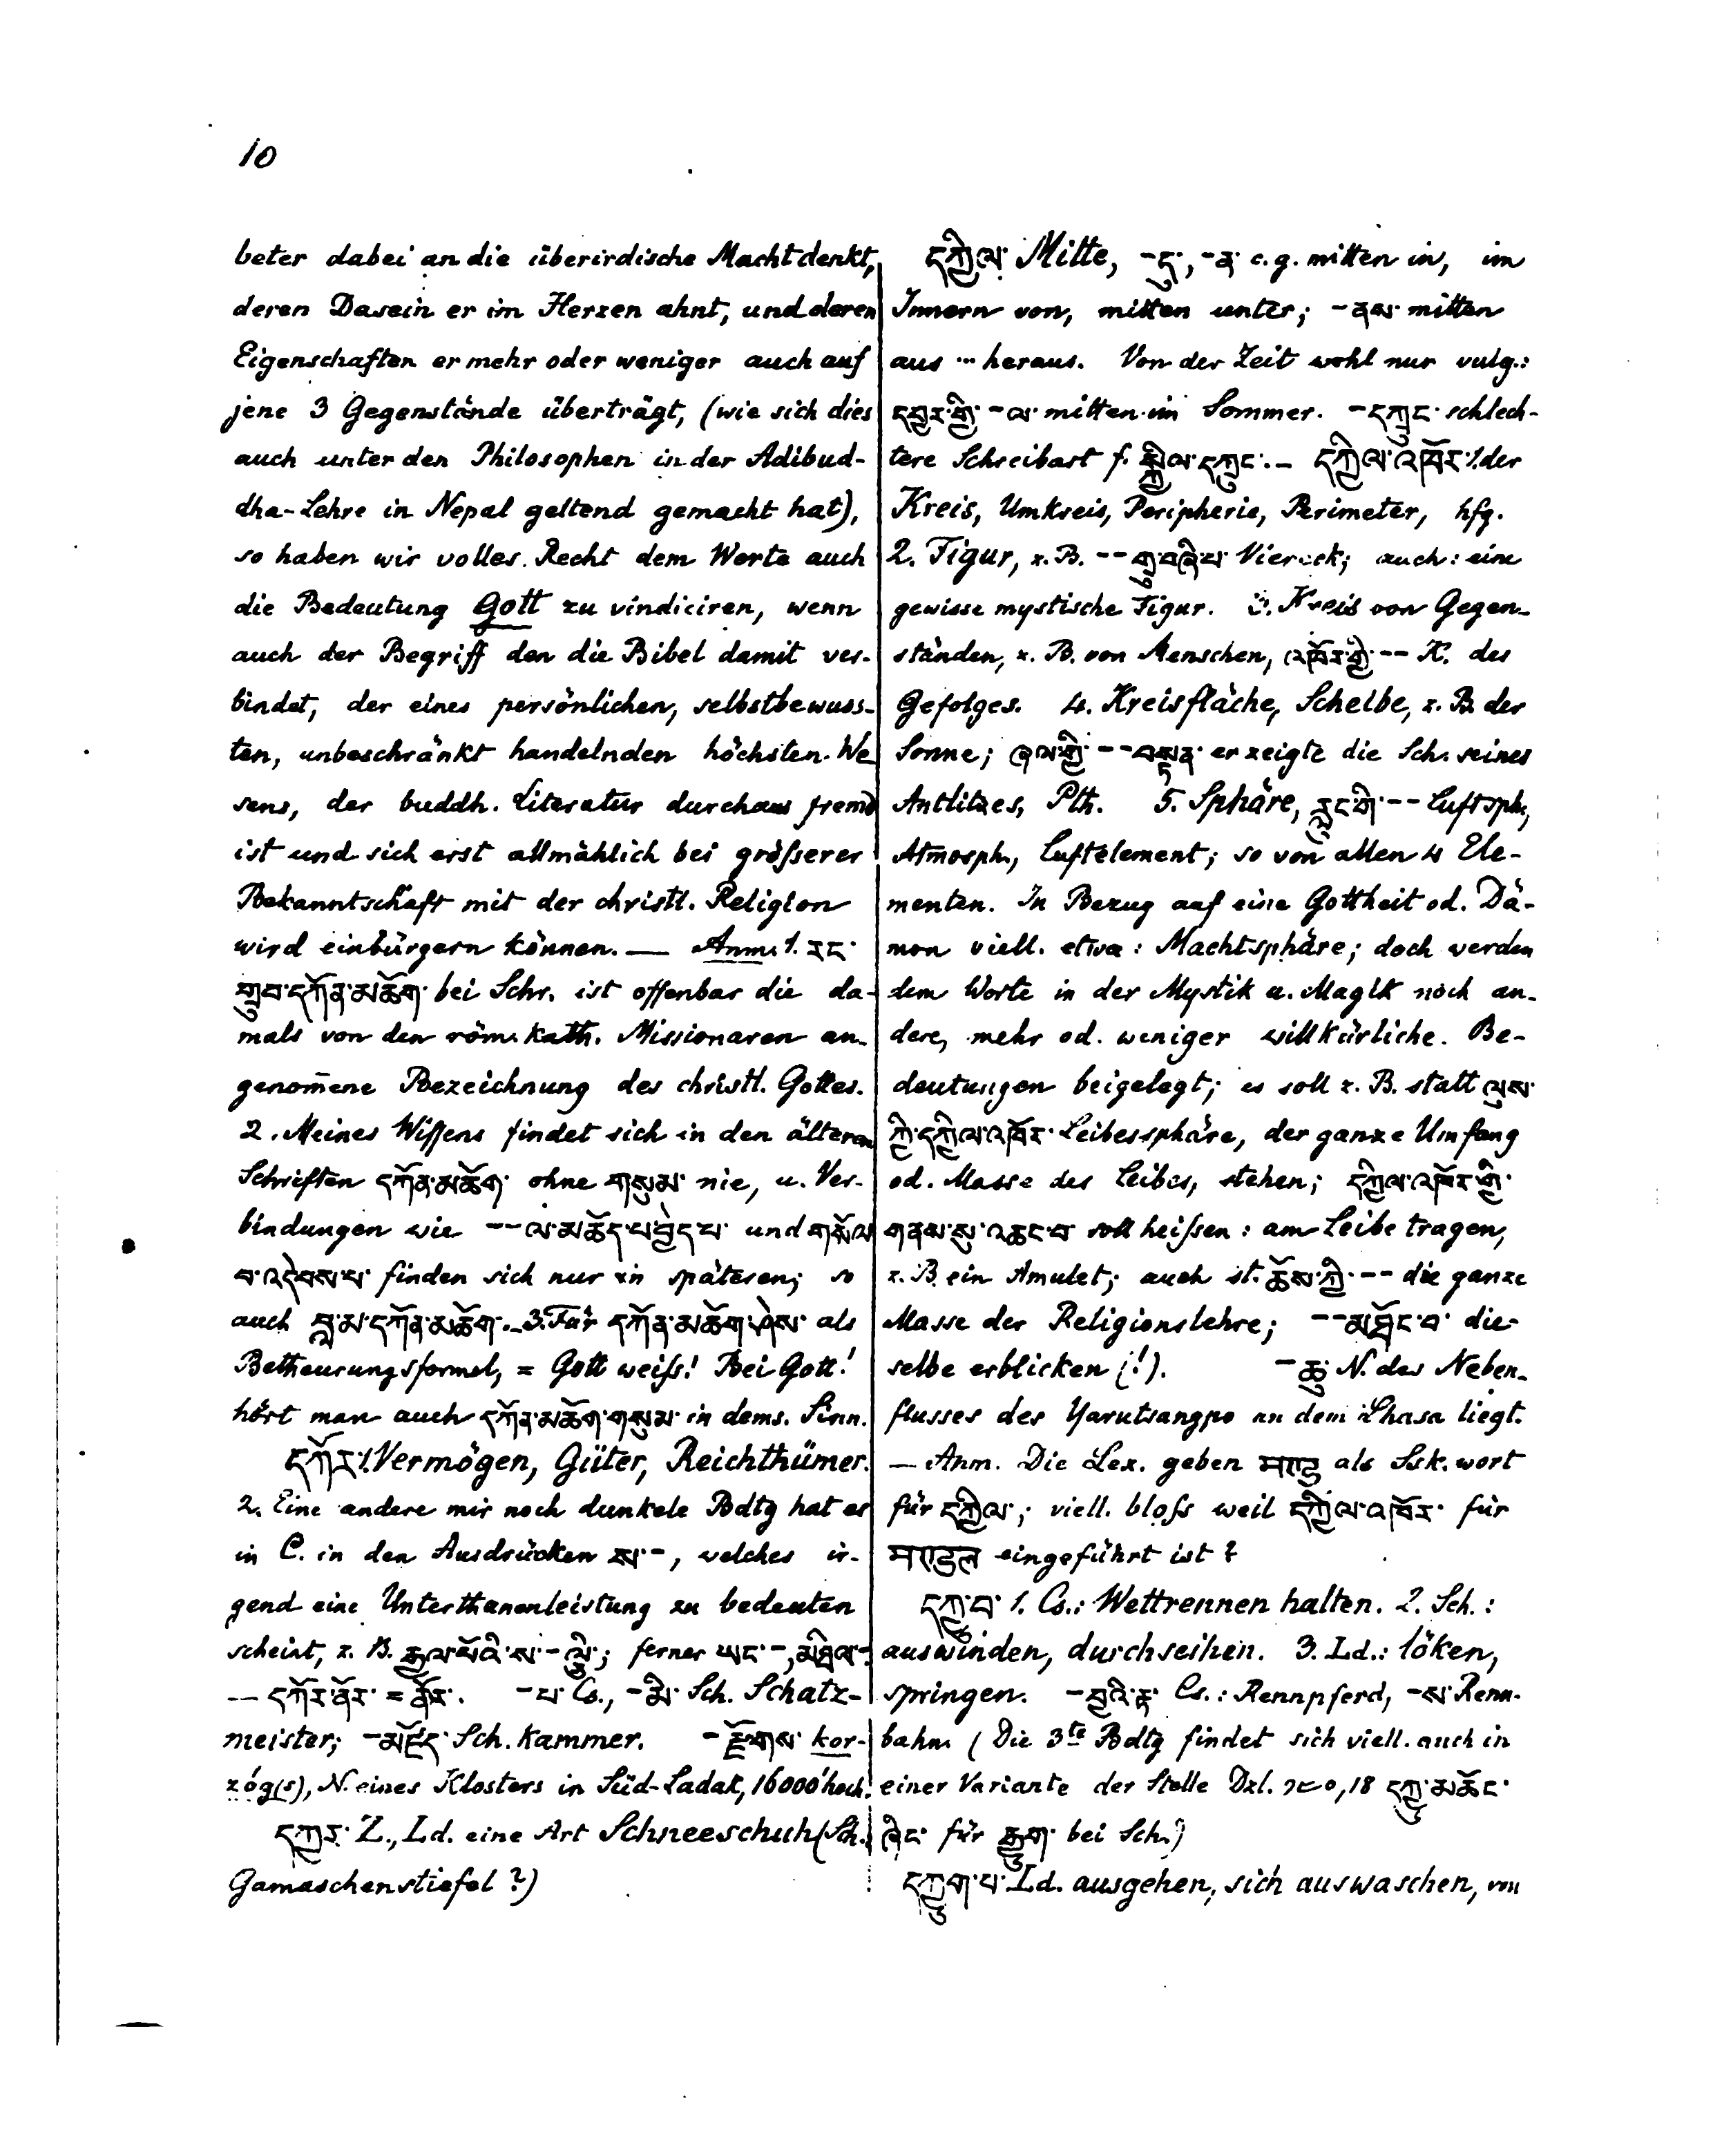 10
beter dabei an die überirdische Macht denkt,
deren Dasein er im Herzen ahnt, und deren
Eigenschaften er mehr oder weniger auch auf
jene 3 Gegenstände überträgt, (wie sich dies
auch unter den Philosophen in der Adibud-
dha-Lehre in Nepal geltend gemacht hat),
so haben wir volles Recht dem Worte auch
die Bedeutung Gott zu vindiciren, wenn
auch der Begriff den die Bibel damit ver-
bindet, der eines persönlichen, selbstbewuss-
ten, unbeschränkt handelnden höchsten We
sens, der buddh. Literatur durchaus fremd
ist und sich erst allmählich bei größerer
Bekanntschaft mit der christl. Religion
wird einbürgern können. — Anm. 1. རང་
གྲུབ་དཀོན་མཆོག་ bei Schr. ist offenbar die da-
mals von den röm. kath. Missionaren an-
genom̄ene Bezeichnung des christl. Gottes.
2. Meines Wissens findet sich in den älteren
Schriften དཀོན་མཆོག་ ohne གསུམ་ nie, u. Ver-
bindungen wie -- ལ་མཆོད་པ་བྱེད་པ་ und གསོལ
བ་འདེབས་པ་ finden sich nur in späteren; so
auch བླ་མ་དཀོན་མཆོག་. _ 3. Für དཀོན་མཆོག་ཤེས་ als
Betheurungsformel, = Gott weiß! Bei Gott!
hört man auch དཀོན་མཆོག་གསུམ་ in dems. Sinn.
དཀོར་ 1. Vermögen, Güter, Reichthümer.
2. Eine andere mir noch dunkele Bdtg hat es
in C. in den Ausdrücken ས་-, welches ir-
gend eine Unterthanenleistung zu bedeuten
scheint, z. B. རྒྱལ་པོའི་ས་- ; ferner ཡང་-, མཐིལ་-.
— དཀོར་ནོར་ = ནོར་. -པ་ Cs., -མི་ Sch. Schatz-
meister; -མཛོད་ Sch. Kammer. -རྫོགས་ kor-
zóg(s), N. eines Klosters in Süd-Ladak, 16000' hoch.
དཀྱར་ Z., Ld. eine Art Schneeschuh (Sch.
Gamaschenstiefel?)
དཀྱིལ་ Mitte, -དུ་, -ན་ c. g. mitten in, im
Innern von, mitten unter; -ནས་ mitten
aus ... heraus. Von der Zeit wohl nur vulg.:
དབྱར་གྱི་ -ལ་ mitten im Sommer. -དཀྲུང་ schlech-
tere Schreibart f. སྐྱིལ་དཀྲུང་. — དཀྱིལ་འཁོར་ 1. der
Kreis, Umkreis, Peripherie, Perimeter, hfg.
2. Figur, z. B. -- གྲུ་བཞི་པ་ Viereck; auch: eine
gewisse mystische Figur. 3. Kreis von Gegen-
ständen, z. B. von Menschen, འཁོར་གྱི་ -- K. des
Gefolges. 4. Kreisfläche, Scheibe, z. B. der
Sonne; ཞལ་གྱི་ -- བསྟན་ er zeigte die Sch. seines
Antlitzes, Pth. 5. Sphäre, རླུང་གི་ -- Luftsph.,
Atmosph., Luftelement; so von allen 4 Ele-
menten. In Bezug auf eine Gottheit od. Dä-
mon viell. etwa: Machtsphäre; doch werden
dem Worte in der Mystik u. Magik noch an-
dere, mehr od. weniger willkürliche Be-
deutungen beigelegt; es soll z. B. statt ལུས་
ཀྱི་དཀྱིལ་འཁོར་ Leibessphäre, der ganze Umfang
od. Masse des Leibes, stehen; དཀྱིལ་འཁོར་གྱི་
གནས་སུ་འཆང་བ་ soll heißen: am Leibe tragen,
z. B. ein Amulet; auch st. ཆོས་ཀྱི་ -- die ganze
Masse der Religionslehre; -- མཐོང་བ་ die-
selbe erblicken (!). -ཆུ་ N. des Neben-
flusses des Yarutsangpo an dem Lhasa liegt.
— Anm. Die Lex. geben als Ssk. wort
für དཀྱིལ་; viell. bloß weil དཀྱིལ་འཁོར་ für
मण्डल eingeführt ist?
དཀྱུ་བ་ 1. Cs.: Wettrennen halten. 2. Sch.:
auswinden, durchseihen. 3. Ld.: löken,
springen. -བྱའི་རྟ་ Cs.: Rennpferd, -ས་ Renn-
bahn. (Die 3te Bdtg findet sich viell. auch in
einer Variante der Stelle Dzl. 18 དཀྱུ་མཆོང་
ཞིང་ für རྒྱུག་ bei Sch.)
དཀྱུག་པ་ Ld. ausgehen, sich auswaschen, von